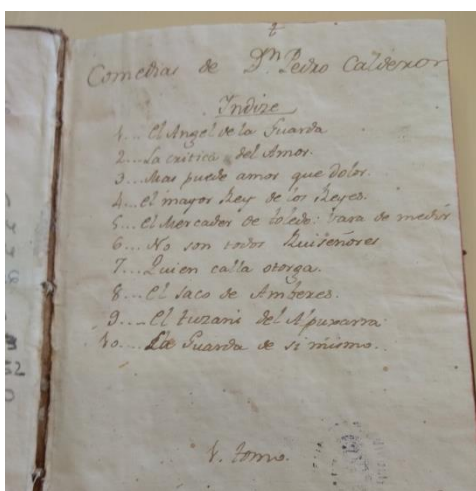 Comedias de Dn Pedro Calderon
Indize
1... El Angel de la Guarda
2... La critica del Amor.
3... Mas puede amor que dolor.
4... el mayor Rey de los Reyes.
5... El Mercader de toledo: vara de medir
6... No son todos Ruiseñores
7... Quien calla otorga.
8... el saco de Amberes.
9... El tuzani del Alpuxarra
10... La Guarda de si mismo.
1. tomo.
52